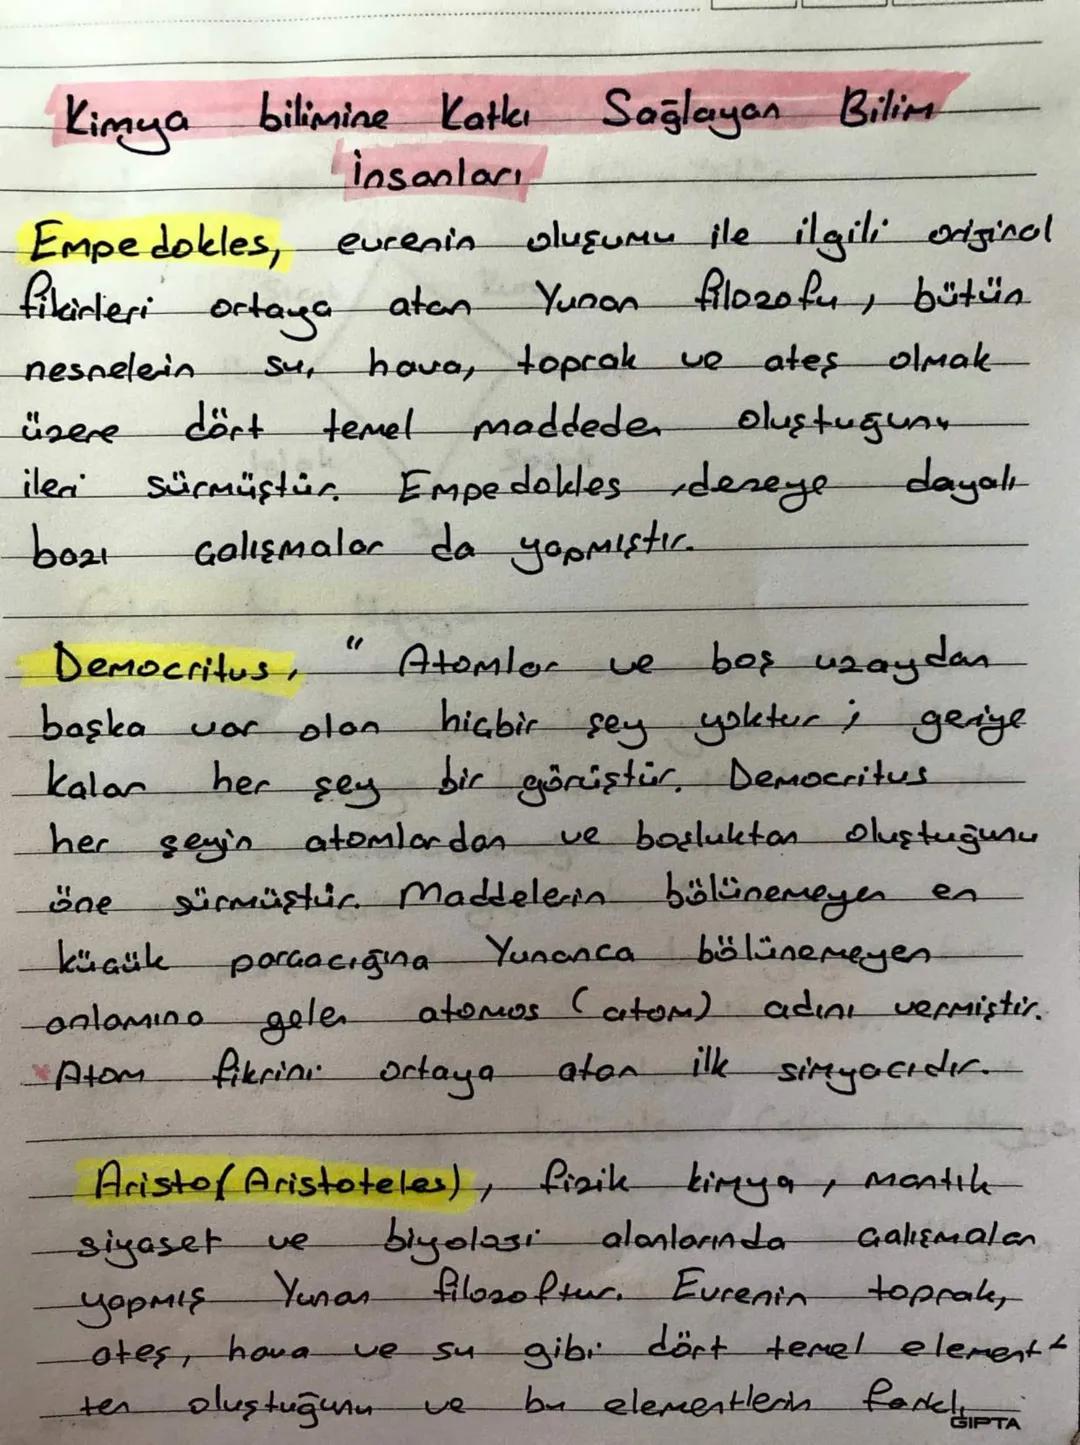 Kimya bilimine Katkı Sağlayan Bilim
İnsanları
Empedokles, evrenin oluşumu ile ilgili orijinal
fikirleri ortaya atan Yunan filozofu, bütün
nesnelerin su, hava, toprak ve ateş olmak
üzere dört temel maddeden oluştuğunu
ileri sürmüştür. Empedokles, deneye dayalı
bazı çalışmalar da yapmıştır.
Democritus, " Atomlar ve boş uzaydan
başka var olan hiçbir şey yoktur ; geriye
kalan her şey bir görüştür. Democritus
her şeyin atomlardan ve boşluktan oluştuğunu
öne sürmüştür. Maddelerin bölünemeyen en
küçük parçacığına Yunanca bölünemeyen
anlamına gelen atomos (atom) adını vermiştir.
* Atom fikrini ortaya atan ilk simyacıdır.
Aristo(Aristoteles), fizik kimya, mantık
siyaset ve biyoloji alanlarında çalışmaları
yapmış Yunan filozoftur. Evrenin toprak,
ateş, hava ve su gibi dört temel element-
ten oluştuğunu ve bu elementlerin farklı
GIPTA